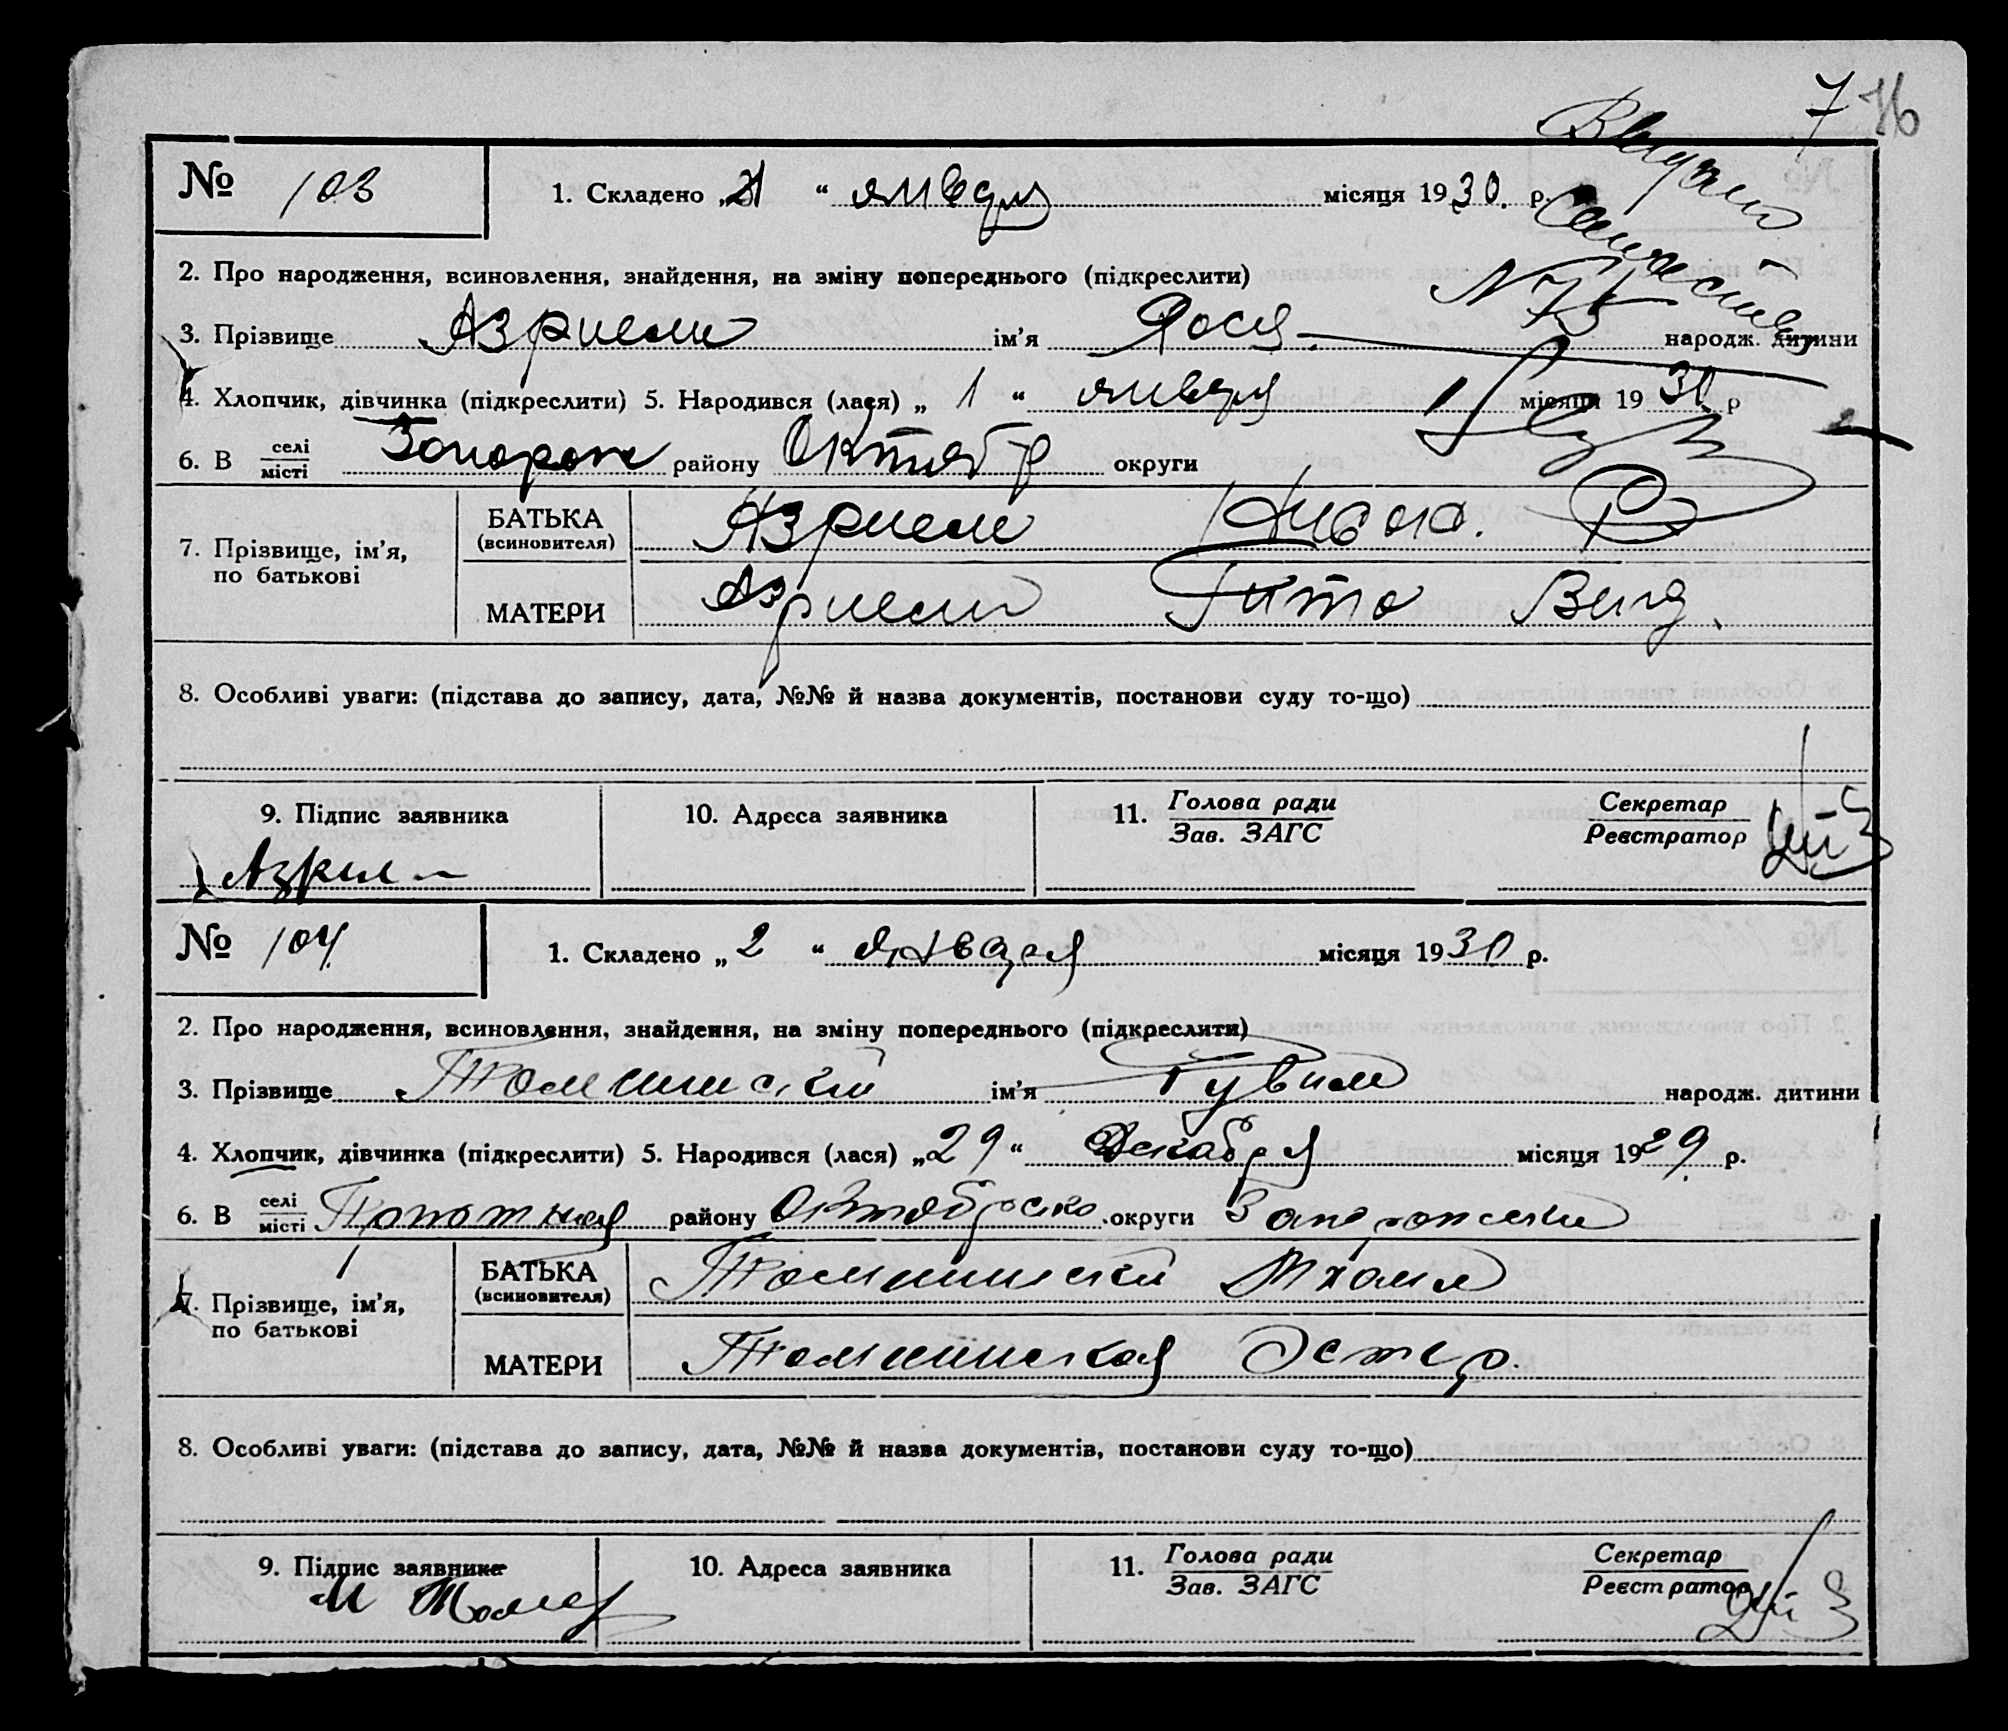 7 76
Выдано
№ 103 1. Складено „21 “ января місяця 1930. р.
2. Про народження, всиновлення, знайдення, на зміну попереднього (підкреслити)
N 75
3. Прізвище Азриели ім'я Рося народж. дитини
4. Хлопчик, дівчинка (підкреслити) 5. Народився (лася) „ 1 “ января місяця 1930 р
6. В селі/місті Запорож району Октябр округи
7. Прізвище, ім'я, по батькові
БАТЬКА (всиновителя) Азриели
МАТЕРИ Азриели Гита
8. Особливі уваги: (підстава до запису, дата, №№ й назва документів, постанови суду то-що)
9. Підпис заявника 10. Адреса заявника 11. Голова ради/Зав. ЗАГС Секретар/Реєстратор
№ 104 1. Складено „ 2 “ января місяця 1930 р.
2. Про народження, всиновлення, знайдення, на зміну попереднього (підкреслити)
3. Прізвище ім'я Рувим народж. дитини
4. Хлопчик, дівчинка (підкреслити) 5. Народився (лася) „29“ Декабря місяця 1929. р.
6. В селі/місті району Октябрско округи Запорожск
7. Прізвище, ім'я, по батькові
БАТЬКА (всиновителя)
МАТЕРИ Эстер.
8. Особливі уваги: (підстава до запису, дата, №№ й назва документів, постанови суду то-що)
9. Підпис заявника 10. Адреса заявника 11. Голова ради/Зав. ЗАГС Секретар/Реєстратор